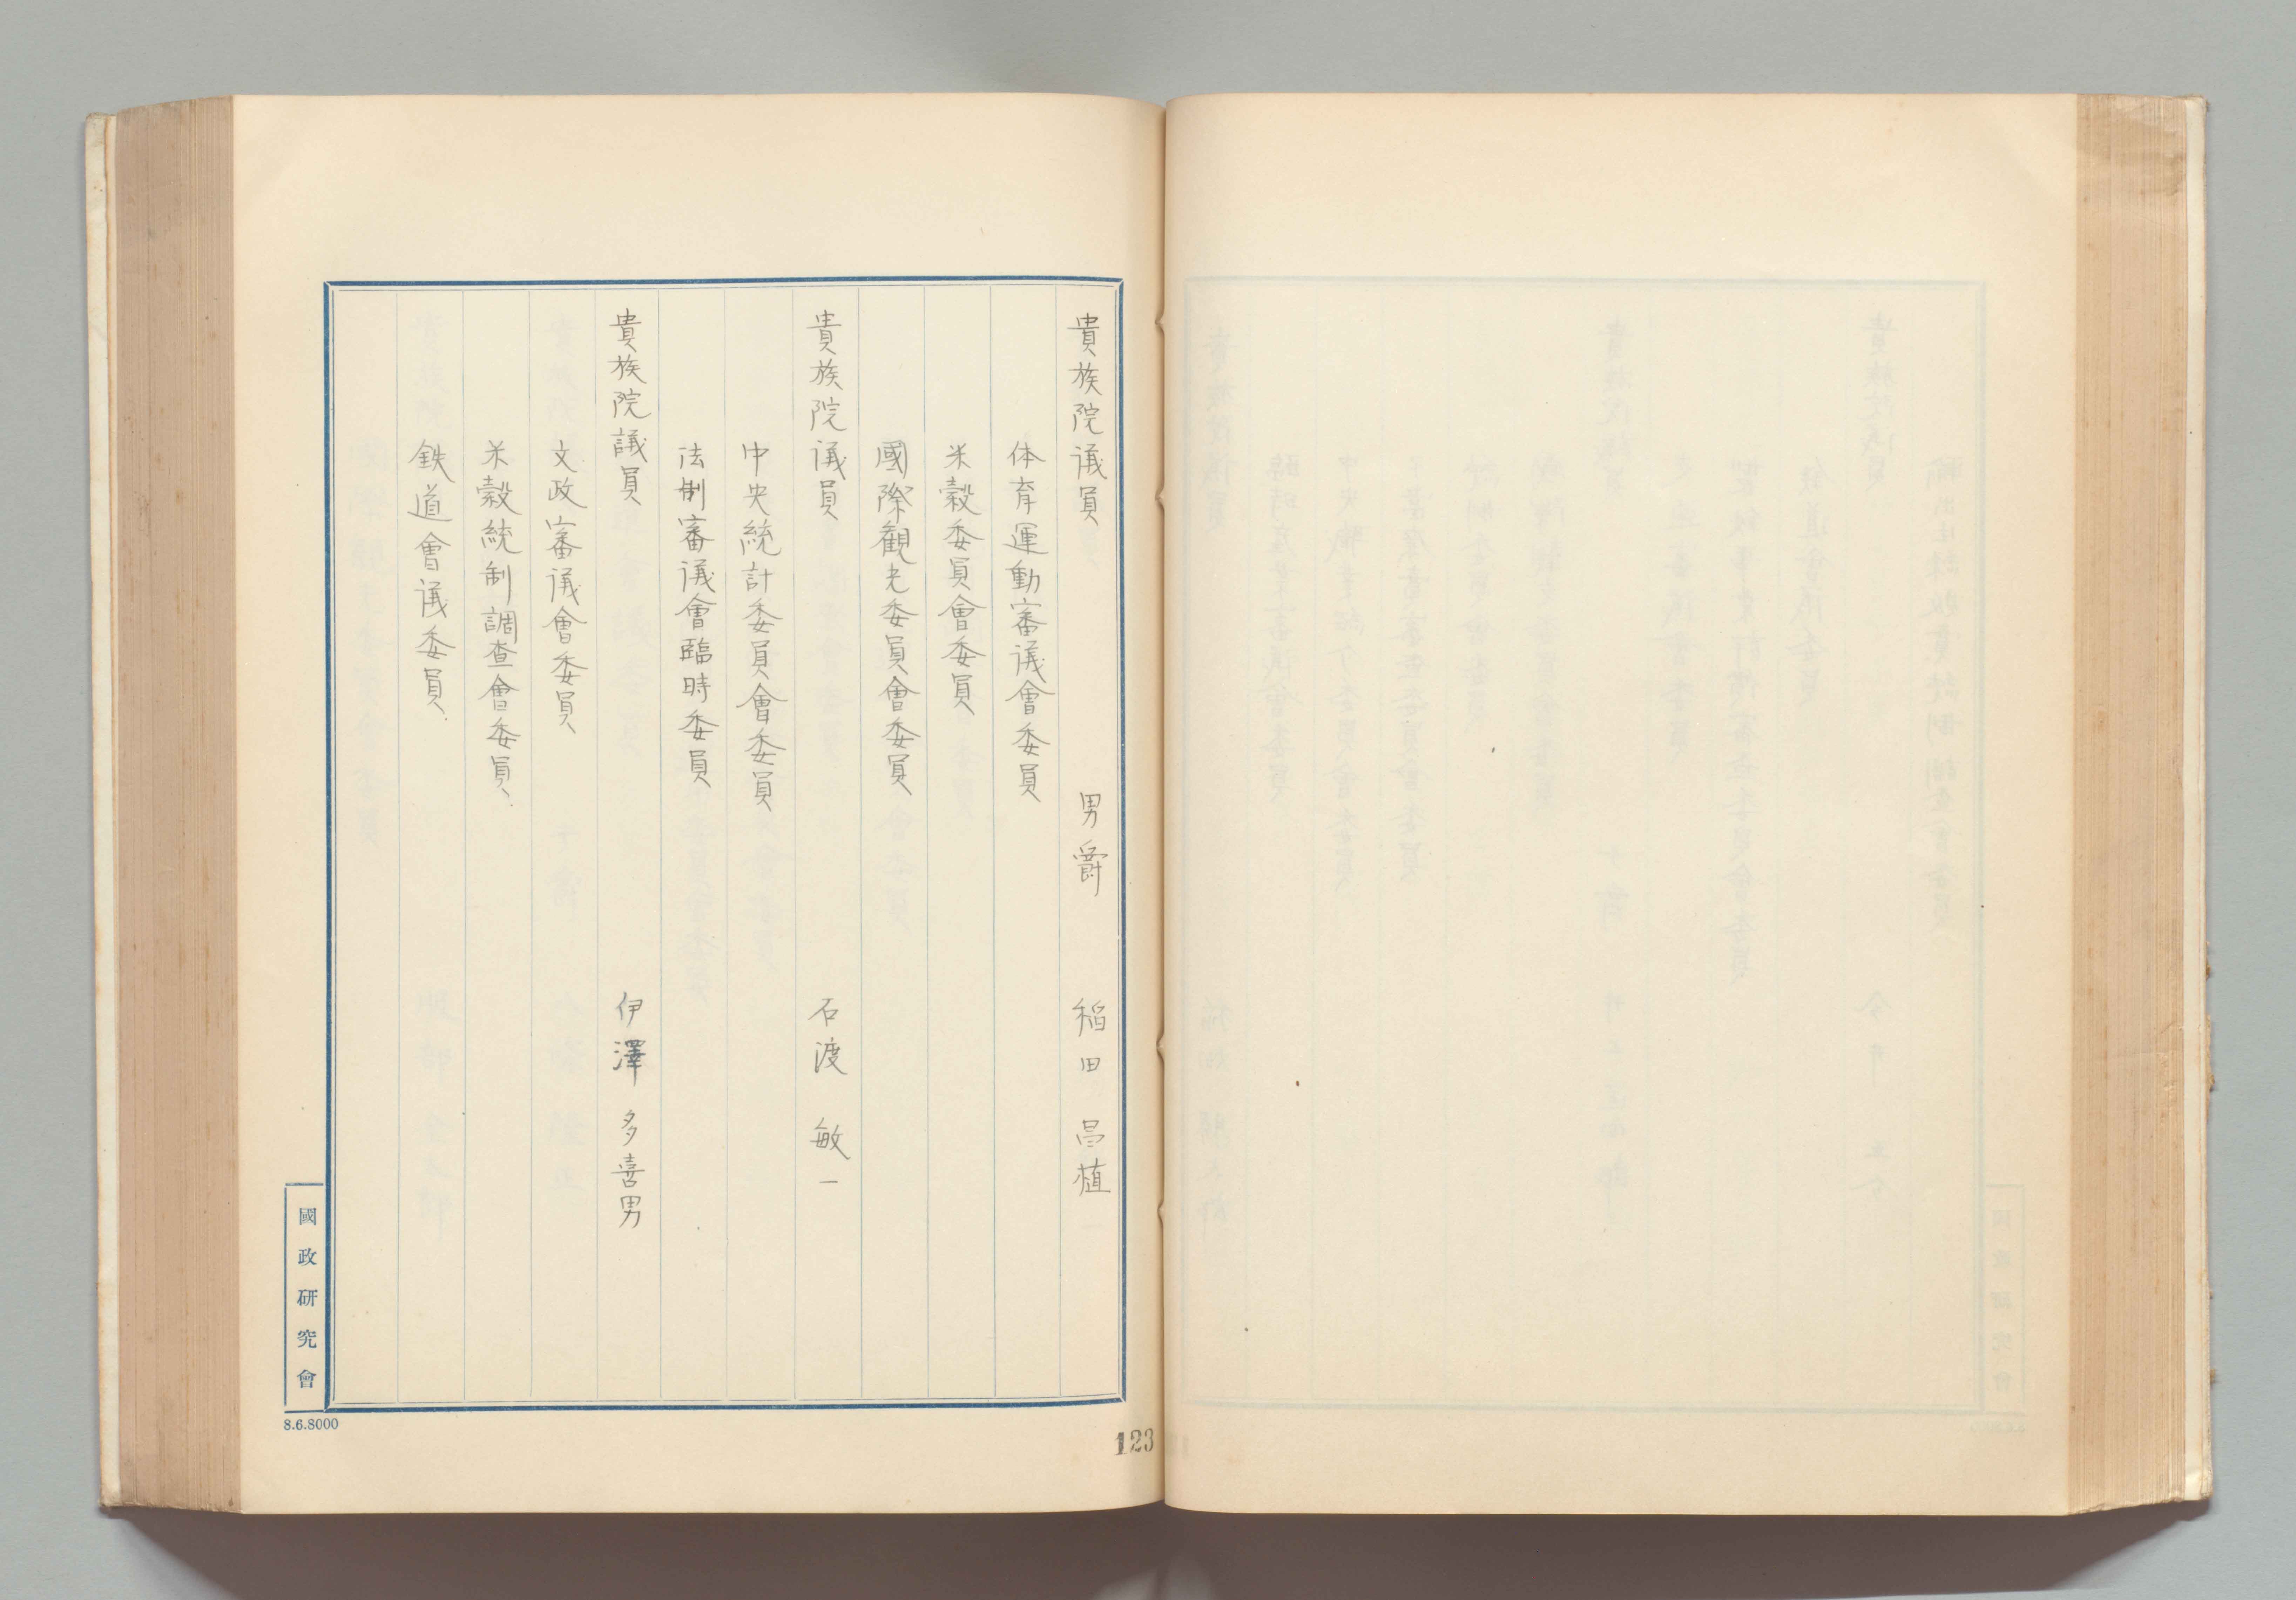 貴族院議員 男爵 稲田昌植
体育運動審議會委員
米穀委員會委員
國際観光委員會委員
貴族院議員 石渡敏一
中央統計委員會委員
法制審議會臨時委員
貴族院議員 伊澤多喜男
文政審議會委員
米穀統制調査會委員
鉄道會議委員
國政研究會
8.6.8000
123